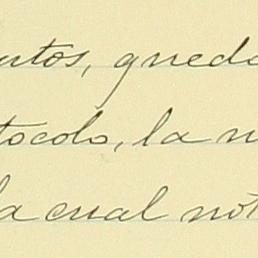 untos, queda
tocolo, la n
la cual not